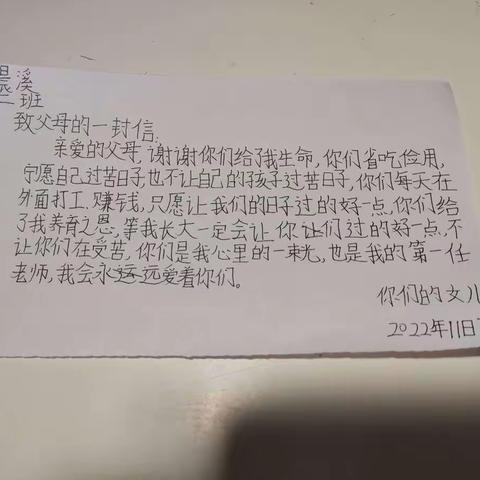 晨溪
二班
致父母的一封信:
亲爱的父母,谢谢你们给了我生命,你们省吃俭用,
宁愿自己过苦日子,也不让自己的孩子过苦日子,你们每天在
外面打工,赚钱,只愿让我们的日子过的好一点,你们给
了我养育之恩,等我长大一定会让你让们过的好一点,不
让你们在受苦,你们是我心里的一束光,也是我的第一任
老师,我会永远远爱着你们。
你们的女儿
2022年11日